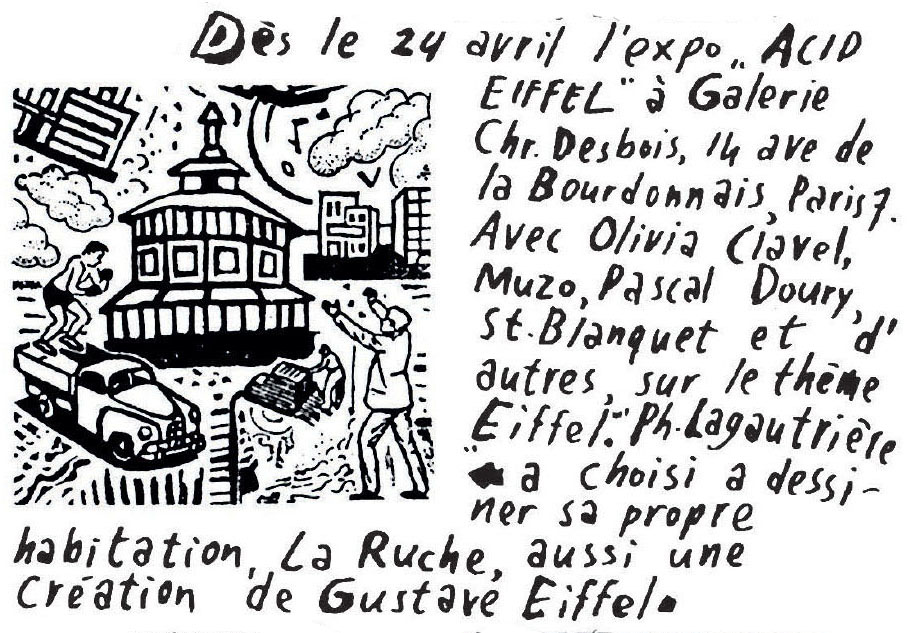 Dès le 24 avril l'expo „ACID
EIFFEL" à Galerie
Chr. Desbois, 14 ave de
la Bourdonnais, Paris 7.
Avec Olivia Clavel,
Muzo, Pascal Doury,
St. Blanquet et d'
autres, sur le thème
"Eiffel". Ph. Lagautrière
a choisi a dessi-
ner sa propre
habitation, La Ruche, aussi une
création de Gustave Eiffel.